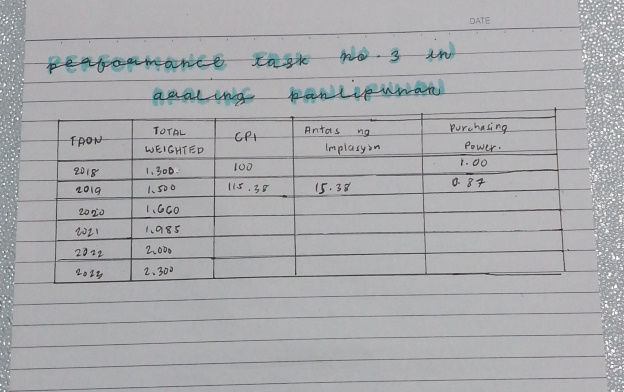 DATE
performance task no. 3 in
araling panlipunan
TAON TOTAL WEIGHTED CPI Antas ng Implasyon Purchasing Power.
2018 1.300. 100 1.00
2019 1.500 115.38 15.38 0.87
2020 1.660
2021 1.985
2022 2.000
2023 2.300